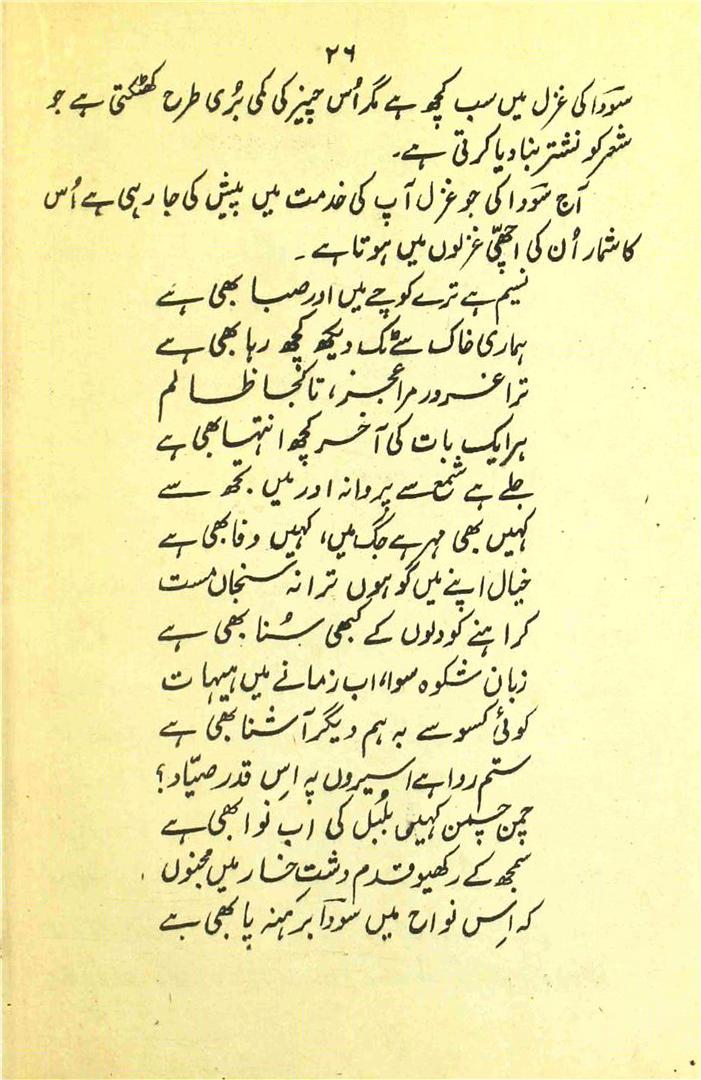 ۲۶
سوداؔ کی غزل میں سب کچھ ہے مگر اُس چیز کی کمی بُری طرح کھٹکتی ہے جو
شعر کو نشتر بنا دیا کرتی ہے۔
آج سوداؔ کی جو غزل آپ کی خدمت میں پیش کی جا رہی ہے اُس
کا شمار اُن کی اچھّی غزلوں میں ہوتا ہے۔
نسیم ہے ترے کوچے میں اور صبا بھی ہے
ہماری خاک سے ٹک دیکھ کچھ رہا بھی ہے
ترا غرور مرا عجز، تا کُجا ظالم
ہر ایک بات کی آخر کچھ انتہا بھی ہے
جلے ہے شمع سے پروانہ اور میں تجھ سے
کہیں بھی مہر ہے جگ میں، کہیں وفا بھی ہے
خیال اپنے میں گو ہوں ترانہ سنجاں مست
کراہنے کو دلوں کے کبھی سُنا بھی ہے
زبان شکوہ سوا، اب زمانے میں ہیہات
کوئی کسو سے بہ ہم دیگر آشنا بھی ہے
ستم روا ہے اسیروں پہ اِس قدر صیّاد؟
چمن چمن کہیں بُلبُل کی اب نوا بھی ہے
سمجھ کے رکھیو قدم دشتِ خار میں مجنوں
کہ اِس نواح میں سوداؔ برہنہ پا بھی ہے